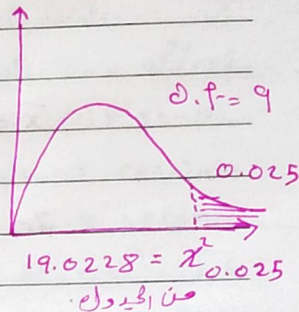 d.f = 9
0.025
19.0228 = χ²0.025
من الجدول.